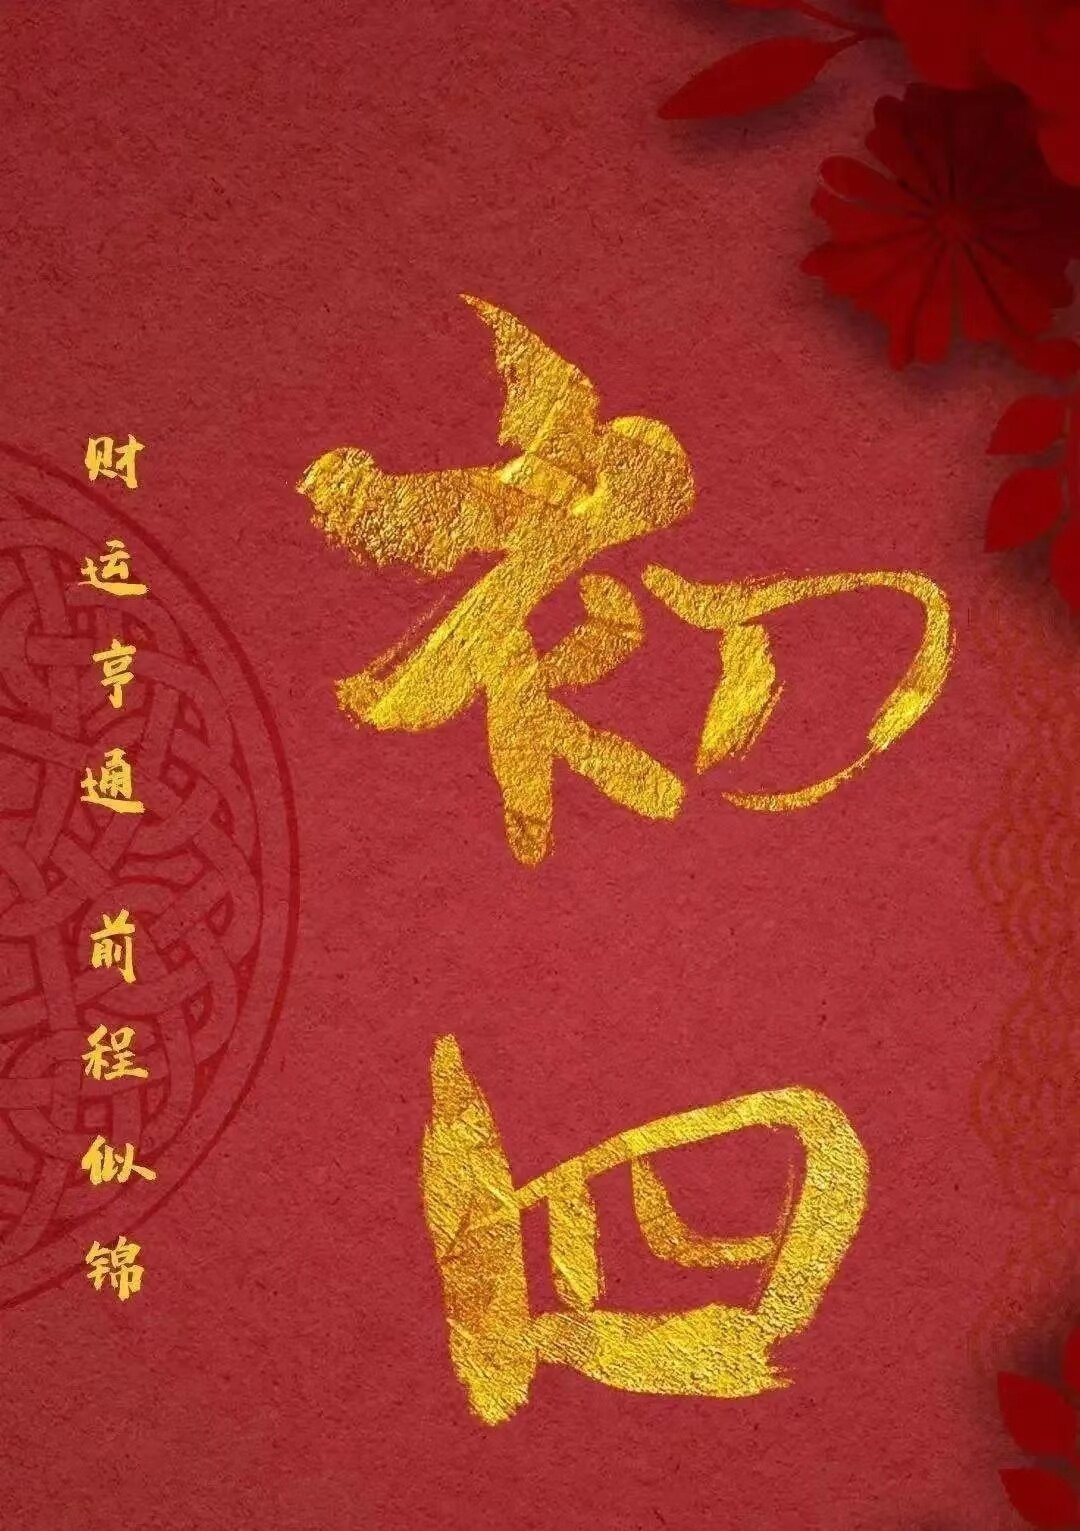 初四
财运亨通 前程似锦